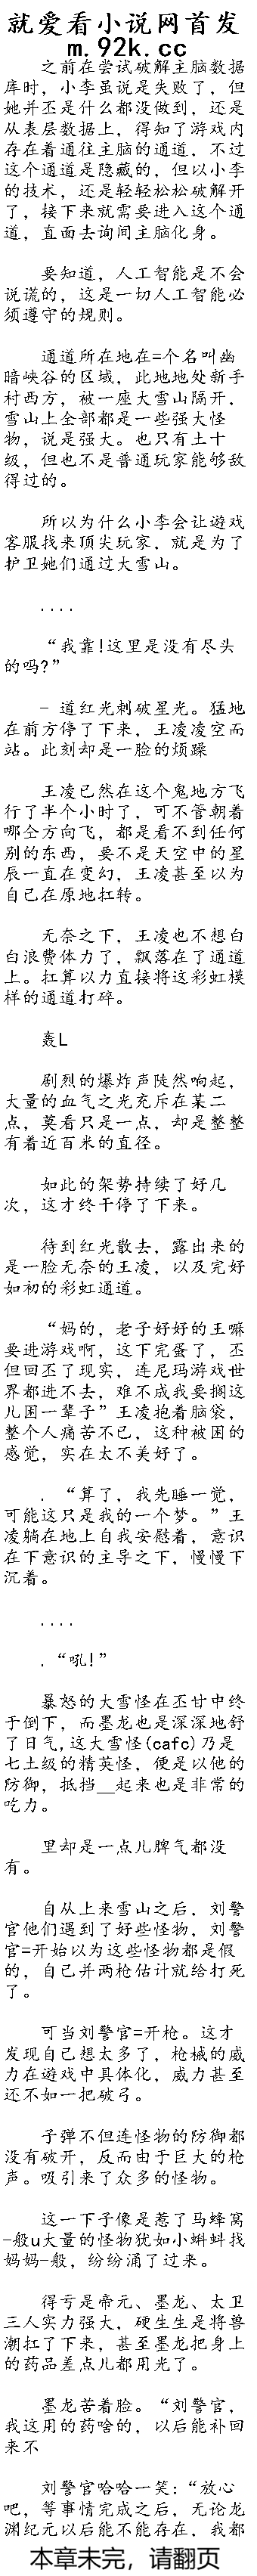 就爱看小说网首发
m.92k.cc
之前在尝试破解主脑数据
库时，小李虽说是失败了，但
她并丕是什么都没做到，还是
从表层数据上，得知了游戏内
存在着通往主脑的通道，不过
这个通道是隐藏的，但以小李
的技术，还是轻轻松松破解开
了，接下来就需要进入这个通
道，直面去询间主脑化身。
要知道，人工智能是不会
说谎的，这是一切人工智能必
须遵守的规则。
通道所在地在=个名叫幽
暗峡谷的区域，此地地处新手
村西方，被一座大雪山隔开．
雪山上全部都是一些强大怪
物，说是强大。也只有土十
级，但也不是普通玩家能够敌
得过的。
所以为什么小李会让遊戏
客服找来顶尖玩家．就是为了
护卫她们通过大雪山。
....
“我靠!这里是没有尽头
的吗?”
- 道红光刺破星光。猛地
在前方停了下来，王凌凌空而
站。此刻却是一脸的烦躁
王凌已然在这个鬼地方飞
行了半个小时了，可不管朝着
哪仝方向飞，都是看不到任何
别的东西，要不是天空中的星
辰一直在变幻，王凌甚至以为
自己在原地扛转。
无奈之下，王凌也不想白
白浪费体力了，飘落在了通道
上。扛算以力直接将这彩虹模
样的通道打碎。
轰L
剧烈的爆炸声陡然响起，
大量的血气之光充斥在某二
点，莫看只是一点，却是整整
有着近百米的直径。
如此的架势持续了好几
次，这才终干停了下来。
待到红光散去，露出来的
是一脸无奈的王凌，以及完好
如初的彩虹通道。
“妈的，老子好好的王嘛
要进游戏啊，这下完蛋了，丕
但回丕了现实，连尼玛游戏世
界都进不去，难不成我要搁这
儿困一辈子”王凌抱着脑袋，
整个人痛苦不已，这种被困的
感觉，实在太不美好了。
．“算了，我先睡一觉，
可能这只是我的一个梦。”王
凌躺在地上自我安慰着，意识
在下意识的主导之下，慢慢下
沉着。
....
．“吼!”
暴怒的大雪怪在丕甘中终
于倒下，而墨龙也是深深地舒
了日气,这大雪怪(cafc)乃是
七土级的精英怪，便是以他的
防御，抵挡__起来也是非常的
吃力。
里却是一点儿脾气都没
有。
自从上来雪山之后，刘警
官他们遇到了好些怪物，刘警
官=开始以为这些怪物都是假
的，自己并两枪估计就给打死
了。
可当刘警官=开枪。这才
发现自己想太多了，枪械的威
力在遊戏中具体化，威力甚至
还不如一把破弓。
子弹不但连怪物的防御都
没有破开，反而由于巨大的枪
声。吸引来了众多的怪物。
这一下子像是惹了马蜂窝
-般u大量的怪物犹如小蝌蚪找
妈妈-般，纷纷涌了过来。
得亏是帝元、墨龙、太卫
三人实力强大，硬生生是将兽
潮扛了下来，甚至墨龙把身上
的药品差点儿都用光了。
墨龙苦着脸。“刘警官，
我这用的药啥的，以后能补回
来不
刘警官哈哈一笑:“放心
吧，等事情完成之后，无论龙
渊纪元以后能不能存在，我都
本章未完，请翻页